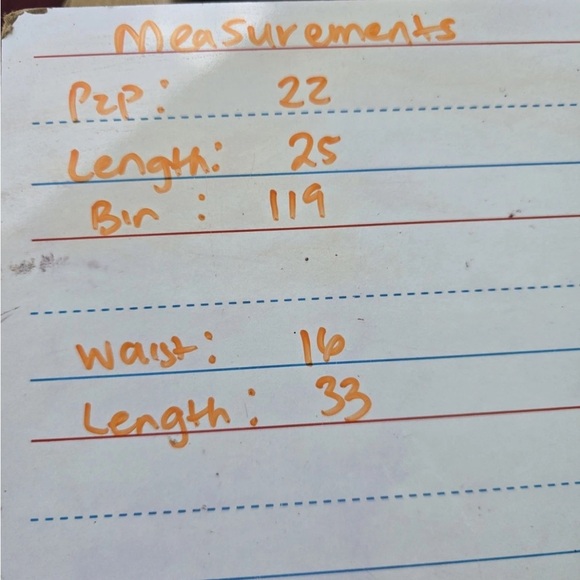 Measurements
P2P: 22
Length: 25
Bin : 119
Waist: 16
Length: 33